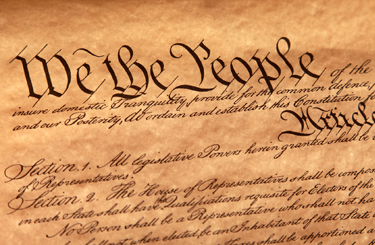 We the People of the
insure domestic Tranquility, provide for the common defence,
and our Posterity, do ordain and establish this Constitution
Article
Section. 1. All legislative Powers herein granted shall be
of Representatives.
Section. 2. The House of Representatives shall be compo
in each State shall have Qualifications requisite for Electors of the
No Person shall be a Representative who shall not ha
when elected, be an Inhabitant of that State
shall be apportioned a